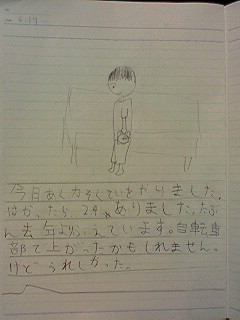 6.19
今日あく力そくていをやりました。
はかったら、29kgありました。たぶ
ん去年よりふえています。自転車
部で上がったかもしれません。
けどうれしかった。